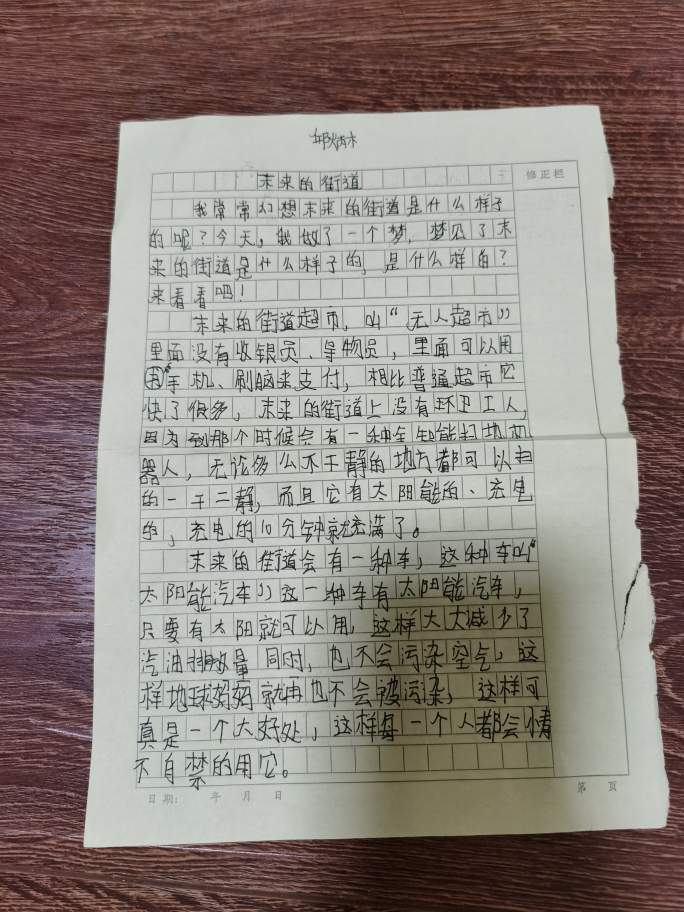 未来的街道
修正栏
我常常幻想未来的街道是什么样子
的呢？今天，我做了一个梦，梦见了未
来的街道是什么样子的，是什么样的？
来看看吧！
未来的街道超市，叫“无人超市”
里面没有收银员、导物员，里面可以用
手机、刷脑来支付，相比普通超市它
快了很多，未来的街道上没有环卫工人，
因为到那个时候会有一种全智能扫地机
器人，无论多么不干静的地方都可以扫
的一干二静，而且它有太阳能的、充电
的，充电的10分钟就充满了。
未来的街道会有一种车，这种车叫“
太阳能汽车”这一种车有太阳能汽车，
只要有太阳就可以用，这样大大减少了
汽油排放量同时，也不会污染空气，这
样地球妈妈就再也不会被污染，这样可
真是一个大好处，这样每一个人都会情
不自禁的用它。
日期： 年 月 日 第 页